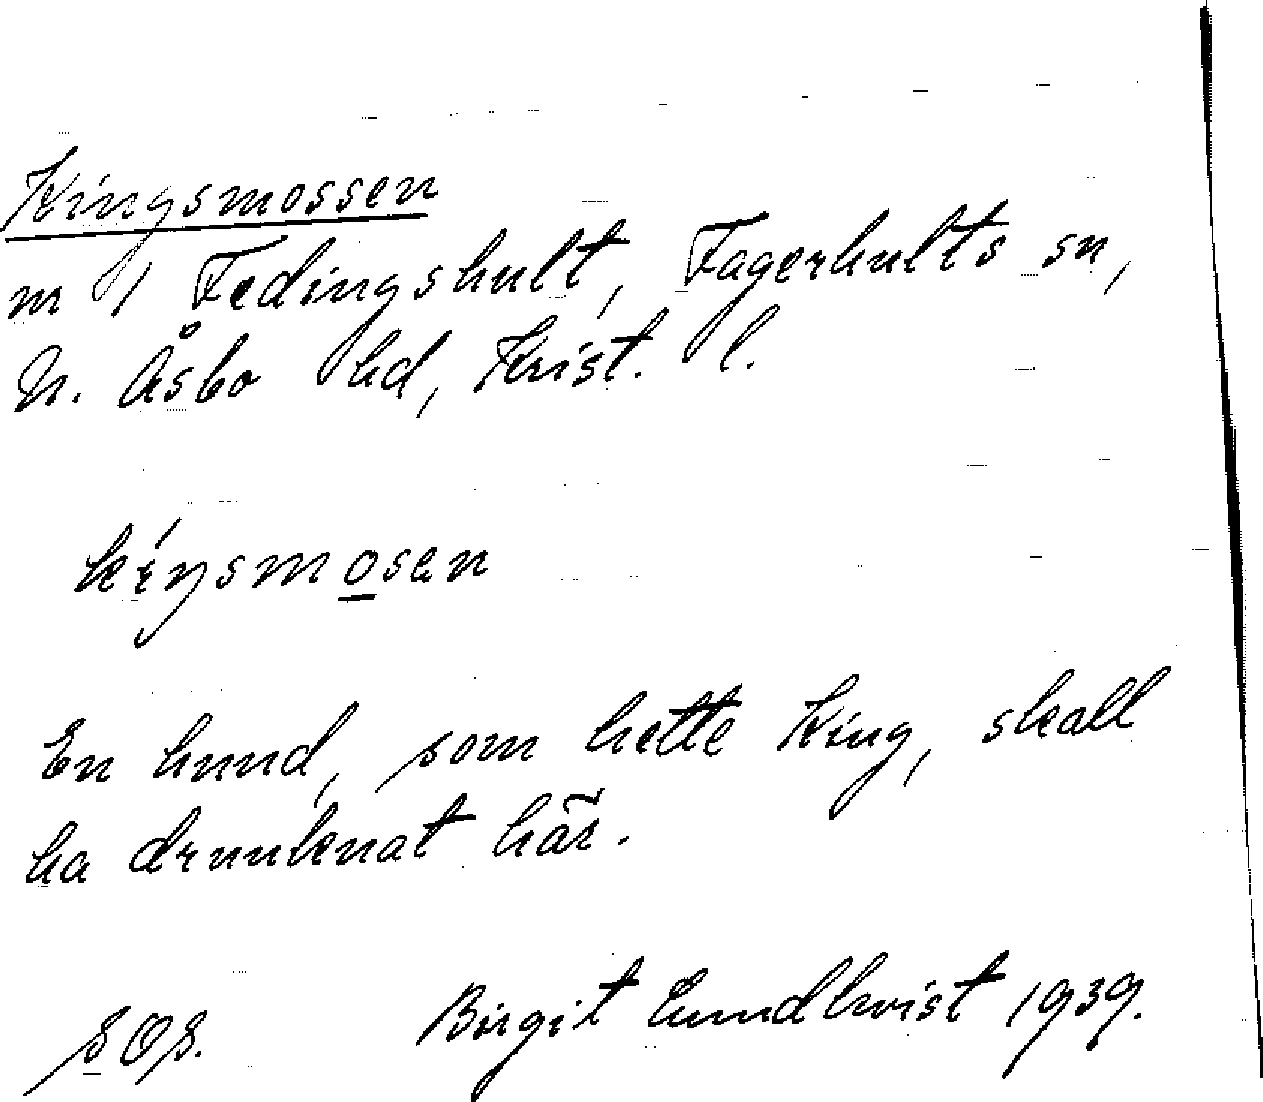 Kingsmossen
m / Fedingshult, Fagerhults sn,
N. Åsbo hd, Krist. l.
kiŋsmosen
En hund, som hette King, skall
ha drunknat här.
SOS. Birgit Lundkvist 1939.